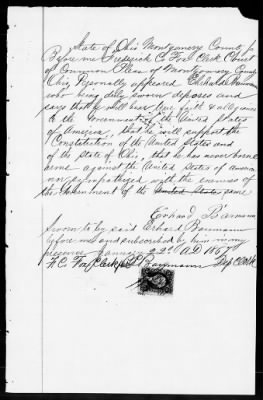 State of Ohio Montgomery County ss
Before me Frederick C. Fox Clerk Court
of Common Pleas of Montgomery County
Ohio Personally appeared Erhard Baumann
who being duly sworn deposes and
says that he will bear true faith & allegiance
to the Government of the United States
of America, that he will support the
Constitution of the United States and
of the State of Ohio, that he has never borne
arms against the United States of America
nor sympathized with the enemies of
the Government of the United States same
Erhard Baumann
Sworn to by said Erhard Baumann
before me and subscribed by him in my
presence January 22d AD 1867
F. C. Fox Clerk Baumann Dep Clerk